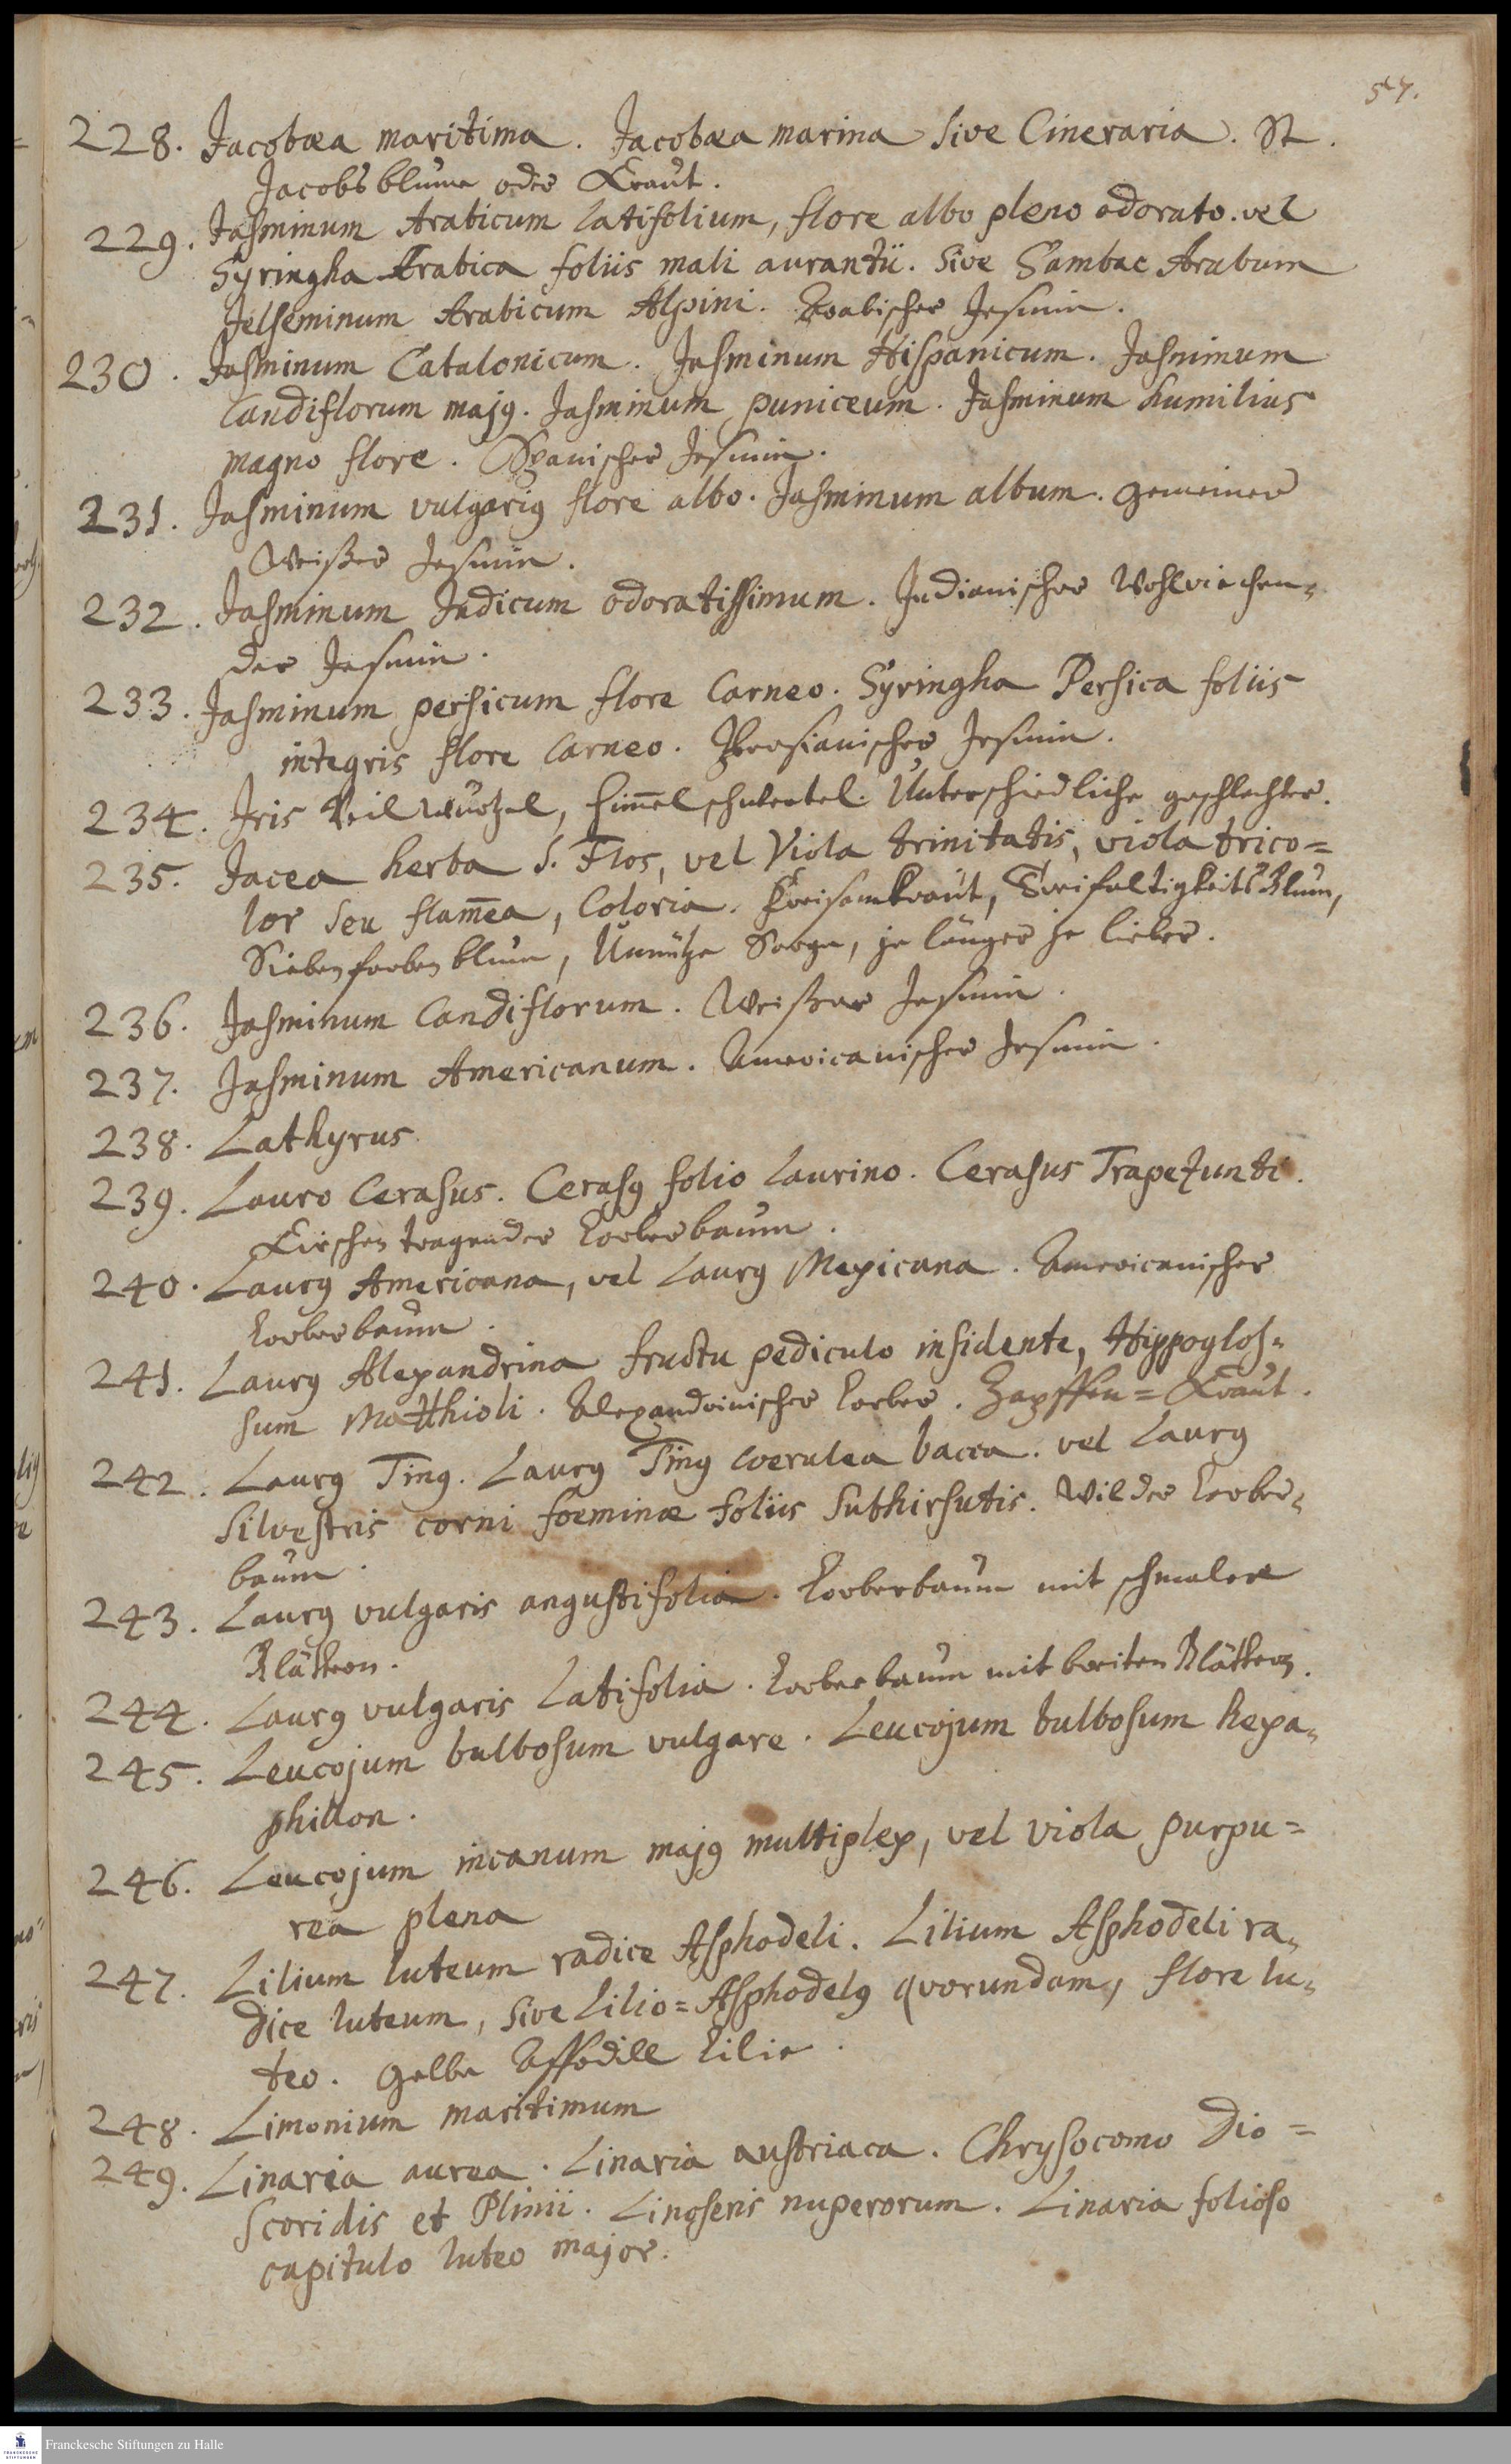 57.
228. Jacobæa maritima. Jacobæa marina sive Cineraria. St.
Jacobsblume oder Kraut.
229. Jasminum Arabicum latifolium, flore albo pleno odorato. vel
Syringha Arabica foliis mali aurantii. sive Sambac Arabum
Jelseminum Arabicum Alpini. Arabischer Jesmin.
230. Jasminum Catalonicum. Jasminum Hispanicum. Jasminum
Candiflorum majꝰ. Jasminum puniceum. Jasminum humilius
magno flore. Spanischer Jesmin.
231. Jasminum vulgariꝰ flore albo. Jasminum album. gemeiner
Weißer Jesmin.
232. Jasminum Indicum odoratissimum. Indianischer Wohlriechen-
der Jesmin.
233. Jasminum persicum flore Carneo. Syringha Persica foliis
integris flore Carneo. Persianischer Jesmin.
234. Iris Veilwurtzel, Himmelschwertel. Unterschiedliche geschlechter.
235. Jacea herba S. Flos, vel Viola trinitatis, viola trico=
lor seu flam̄ea, Coloria. Freisamkraut, Dreifaltigkeits Blum,
Siebenfarben blum, Unnütze Sorge, je länger je lieber.
236. Jasminum Candiflorum. Weißer Jesmin.
237. Jasminum Americanum. Americanischer Jesmin.
238. Lathyrus
239. Lauro Cerasus. Cerasꝰ folio Laurino. Cerasus Trapezunti.
Kirschen tragender Lorberbaum.
240. Laurꝰ Americana, vel Laurꝰ Mexicana. Americanischer
Lorberbaum.
241. Laurꝰ Alexandrina fructu pediculo insidente, Hippoglos=
sum Matthioli. Alexandrinischer Lorber. Zapffen=Kraut.
242. Laurꝰ Tinꝰ. Laurꝰ Tinꝰ coerulea bacca. vel Laurꝰ
silvestris corni foeminæ foliis subhirsutis. Wilder Lorber-
baum.
243. Laurꝰ vulgaris angustifolia. Lorberbaum mit schmalen
Blättern.
244. Laurꝰ vulgaris Latifolia. Lorberbaum mit breiten Blättern.
245. Leucojum bulbosum vulgare. Leucojum bulbosum hexa-
phillon.
246. Leucojum incanum majꝰ multiplex, vel viola purpu=
rea plena
247. Lilium luteum radice Asphodeli. Lilium Asphodeli ra-
dice luteum, sive Lilio=Asphodelꝰ qvorundam, flore lu-
teo. Gelbe Affodill Lilie.
248. Limonium maritimum
249. Linaria aurea. Linaria austriaca. Chrysocomo Dio=
scoridis et Plinii. Linoseris nuperorum. Linaria folioso
capitulo luteo major.
Franckesche Stiftungen zu Halle